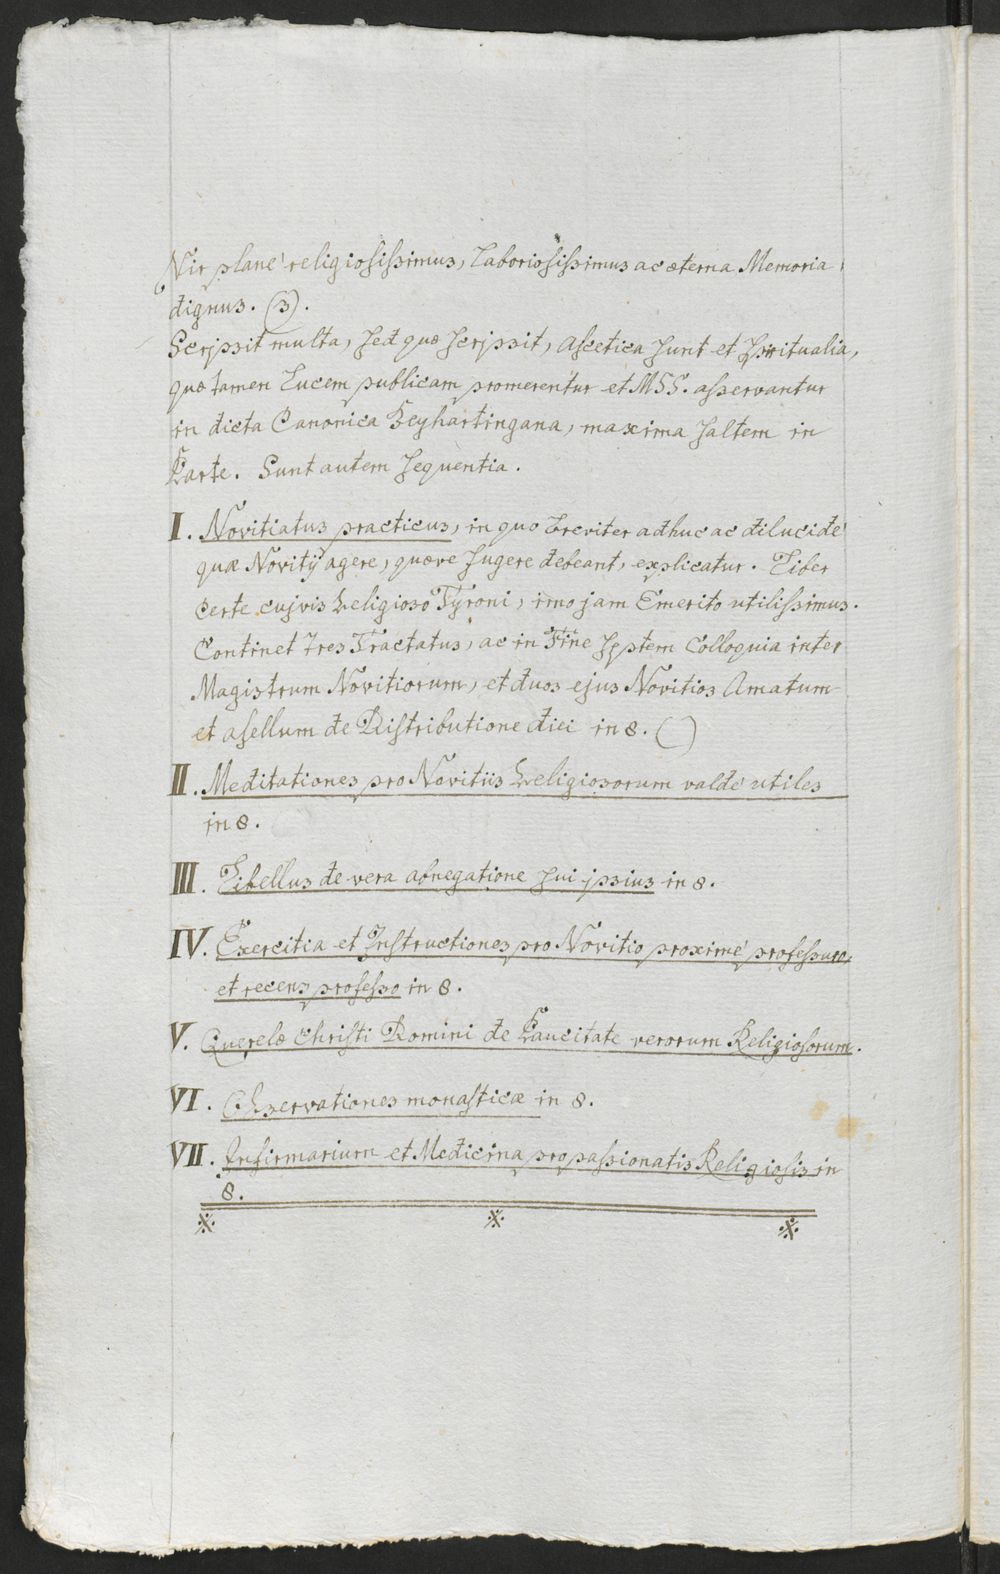 Vir planè religiosissimus, Laboriosissimus ac æterna Memoria
dignus. (3).
Scripsit multa, sed quæ scripsit, ascetica sunt et spiritualia,
quæ tamen Lucem publicam promerentur et MSS. asservantur
in dicta Canonica Beyhartingana, maxima saltem in
Parte. Sunt autem sequentia.
I. Novitiatus practicus, in quo breviter adhuc ac dilucidè
quæ Novitij agere, quæve fugere debeant, explicatur. Liber
certe cujvis Religioso Tyroni, imo jam Emerito utilissimus.
Continet tres Tractatus, ac in Fine septem Colloquia inter
Magistrum Novitiorum, et duos ejus Novitios Amatum
et asellum de Distributione diei in 8. ( )
II. Meditationes pro Novitiis Religiosorum valdè utiles
in 8.
III. Libellus de vera abnegatione sui ipsius in 8.
IV. Exercitia et Instructiones pro Novitio proximè professuro,
et recens professo in 8.
V. Querelæ Christi Domini de Paucitate verorum Religiosorum.
VI. Observationes monasticæ in 8.
VII. Infirmarium et Medicina pro passionatis Religiosis in
8.